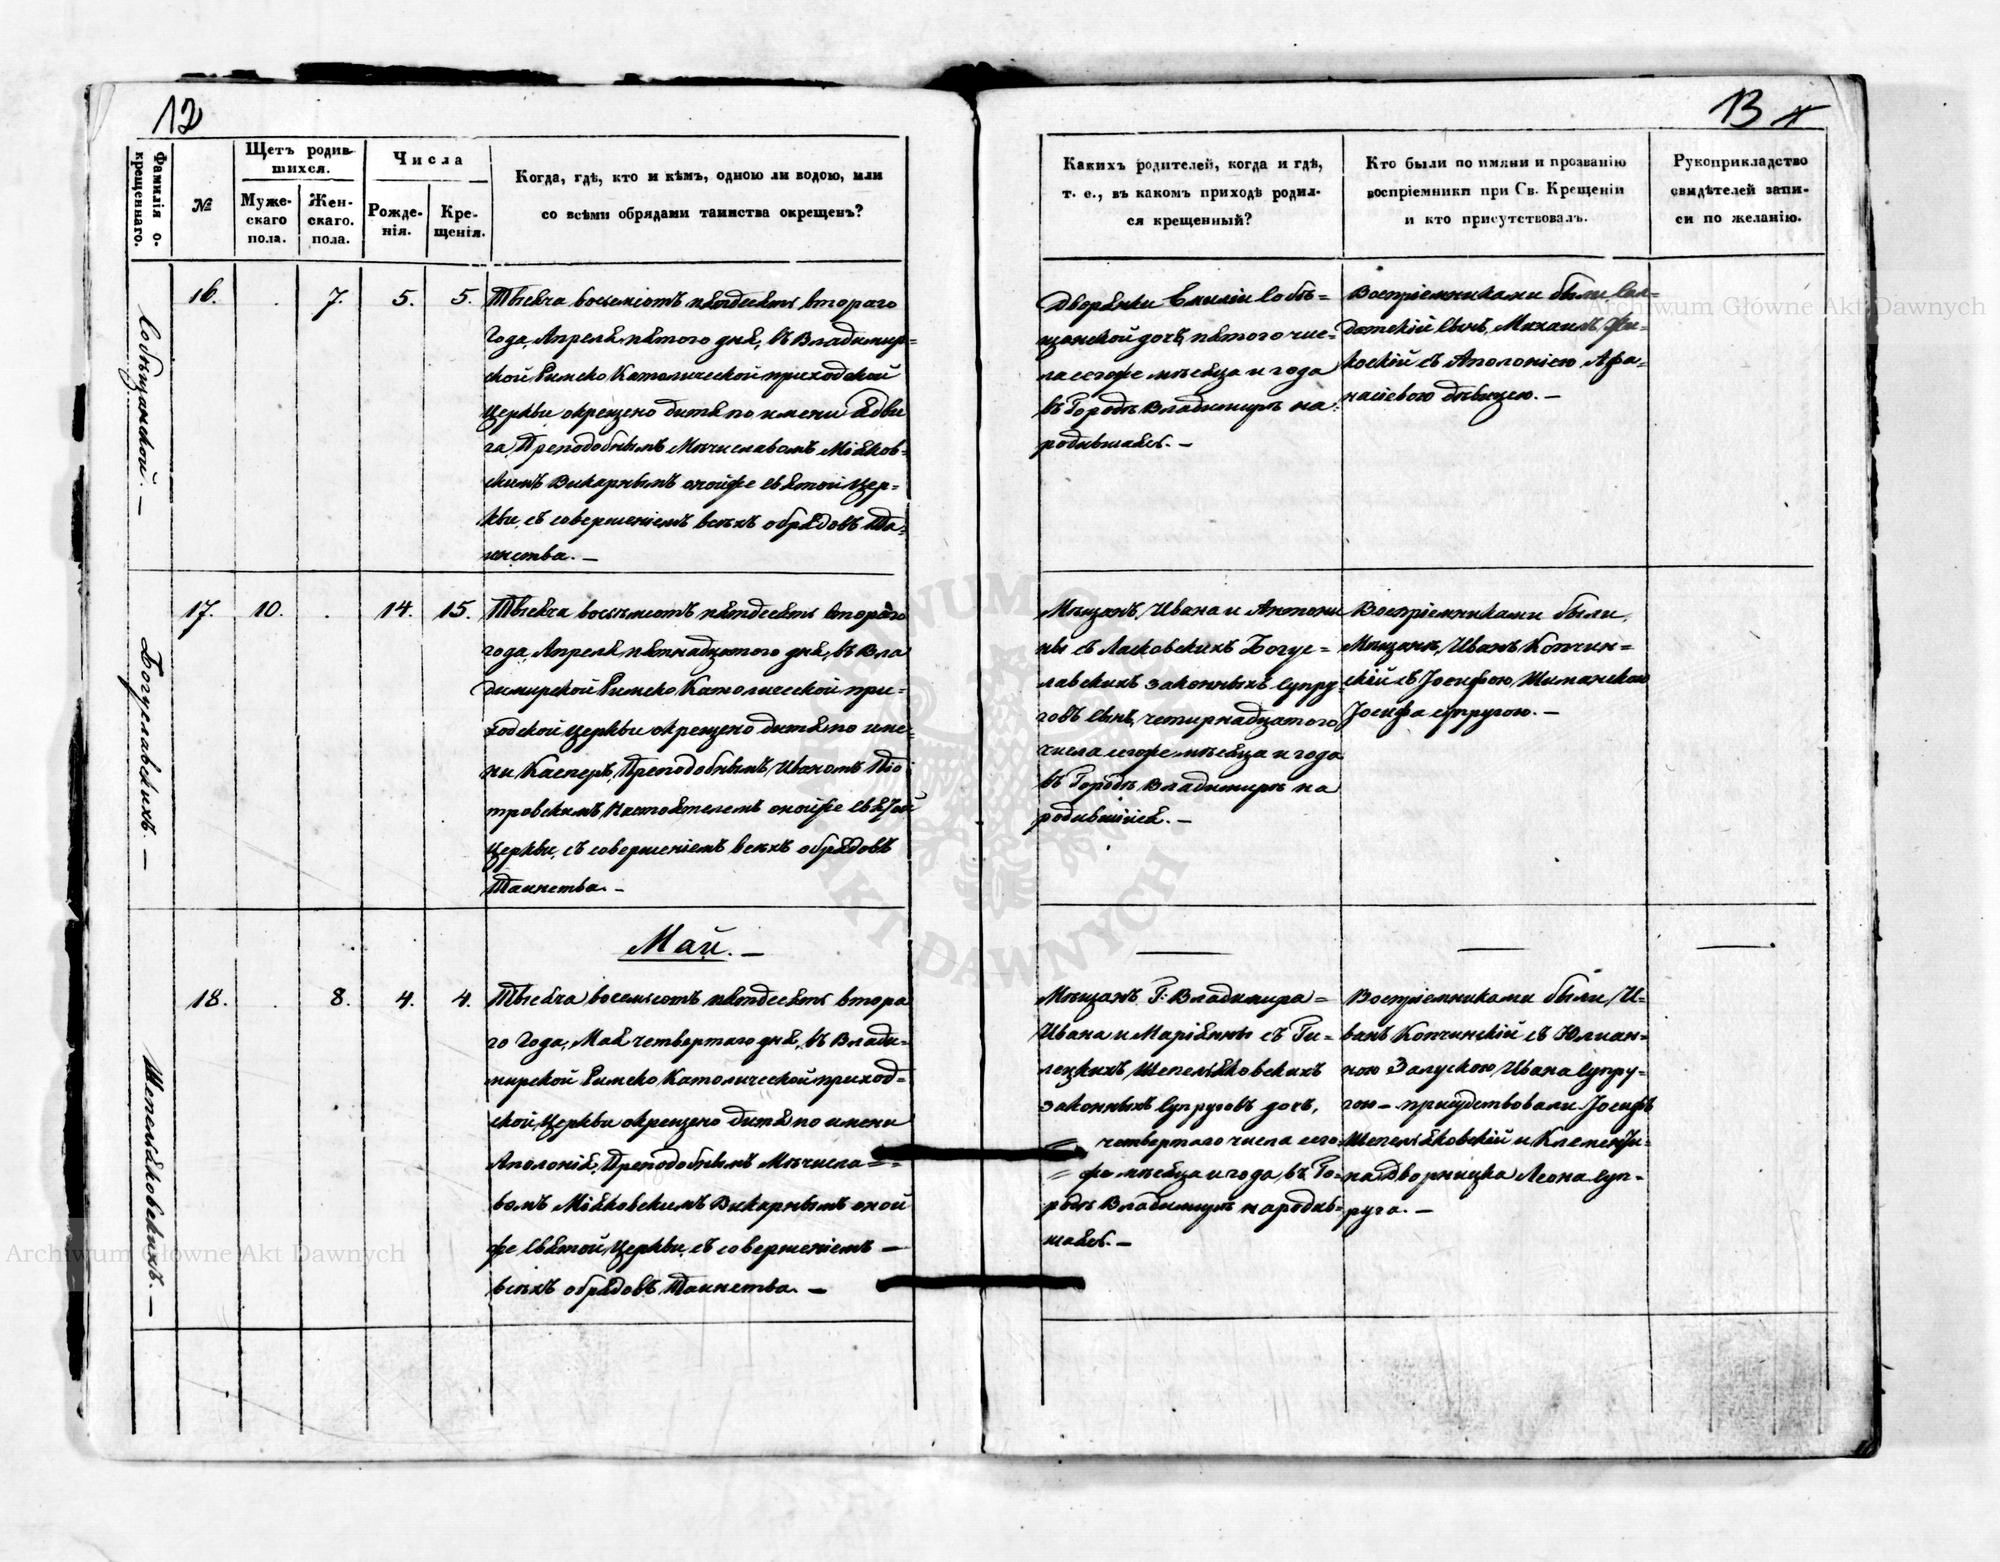 12
Фамилія о-
крещеннаго.
№
Щетъ родив-
шихся.
Муже-
скаго
пола.
Жен-
скаго.
пола.
Числа
Рожде-
нія.
Кре-
щенія.
Когда, гдѣ, кто и кѣмъ, одною ли водою, или
со всѣми обрядами таинства окрещенъ?
Собѣщанской. —
16.
7.
5.
5.
Тысяча восемсотъ пятдесятъ втораго
Года, Апреля пятого дня, въ Владимир-
ской Римско Католической приходской
Церкви окрещено дитя по имени Ядви
га, Преподобнымъ Мѣчиславомъ Міяков-
скимъ Викарнымъ онойже святой Цер-
кви, съ совершеніемъ всѣхъ обрядовъ Та-
инства. —
Богуславскихъ. —
17.
10.
14.
15.
Тысяча восемсотъ пятдесятъ втораго
года, Апреля пятнадцатого дня, въ Вла
димирской Римско Католической при-
ходской церкви окрещено дитя по име-
ни Касперъ, Преподобнымъ Иваномъ Піо
тровскимъ Настоятелемъ онойже святой
Церкви, съ совершеніемъ всѣхъ обрядовъ
Таинства. —
Май. —
Шепеляковскихъ. —
18.
8.
4.
4.
Тысяча восемсотъ пятдесятъ втора
го Года, Мая четвертаго дня, въ Влади-
мирской Римско Католической приход-
ской Церкви окрещено дитя по имени
Аполонія, Преподобнымъ Мѣчисла=
вомъ Міяковскимъ Викарнымъ оной
же святой Церкви, съ совершеніемъ —
всѣхъ обрядовъ Таинства. —
13
Какихъ родителей, когда и гдѣ,
т. е., въ какомъ приходѣ родил-
ся крещенный?
Кто были по имяни и прозванію
воспріемники при Св. Крещеніи
и кто присутствовалъ.
Рукоприкладство
свидѣтелей запи-
си по желанію.
Дворянки Емиліи Собѣ=
щанской дочь, пятого чис-
ла сегоже мѣсяца и года
въ Городѣ Владимирѣ на-
родившаяся. —
Воспріемниками были Сол-
датскій сынъ, Михаилъ
съ Аполоніею Афа-
насіевою дѣвицею. —
Мѣщанъ, Ивана и Антони
ны съ Ласковскихъ Богус=
лавскихъ законныхъ супру-
говъ сынъ, четирнадцатого,
числа сегоже мѣсяца и года
въ Городѣ Владимирѣ на
родившійся. —
Воспріемниками были,
Мѣщане, Иванъ Копчин=
скій съ Іосифою, Шиманскою
Іосифа супругою. —
Мѣщанъ Г: Владимира=
Ивана и Маріянны съ Ги-
лецкихъ Шепеляковскихъ
законныхъ супруговъ дочь,
четвертого числа сего
же мѣсяца и года, въ Го-
родѣ Владимирѣ народив-
шаяся. —
Воспріемниками были, И-
ванъ Копчинскій съ Юлиан-
ною Залускою Ивана супру-
гою — присудствовали Іосифъ
Шепеляковскій и Клементи-
на Дворницка Леона суп-
руга. —
Archiwum Główne Akt Dawnych
Archiwum Główne Akt Dawnych